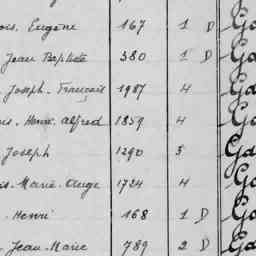 Eugène 167 1 D
Jean Baptiste 380 1 D
Joseph-François 1987 4
Henri Alfred 1859 4
Joseph 1290 3
Marie-Ange 1724 4
Henri 168 1 D
Jean-Marie 789 2 D